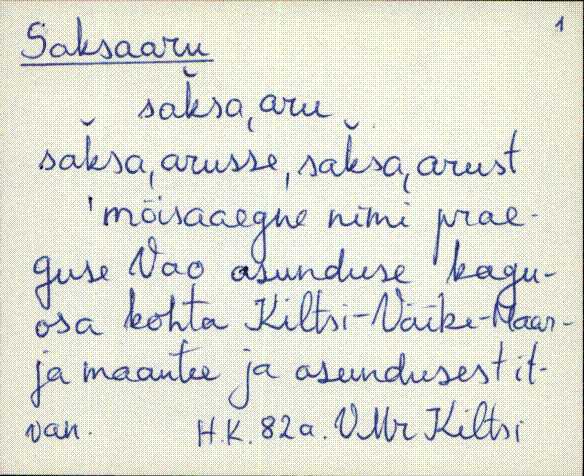 1
Saksaaru
sak̆sa,aru
sak̆sa,arusse, sak̆sa,arust
'mõisaaegne nimi prae-
guse Vao asunduse kagu-
osa kohta Kiltsi-Väike-Maar-
ja maantee ja asundusest it-
van.
H.K. 82a. VMr Kiltsi